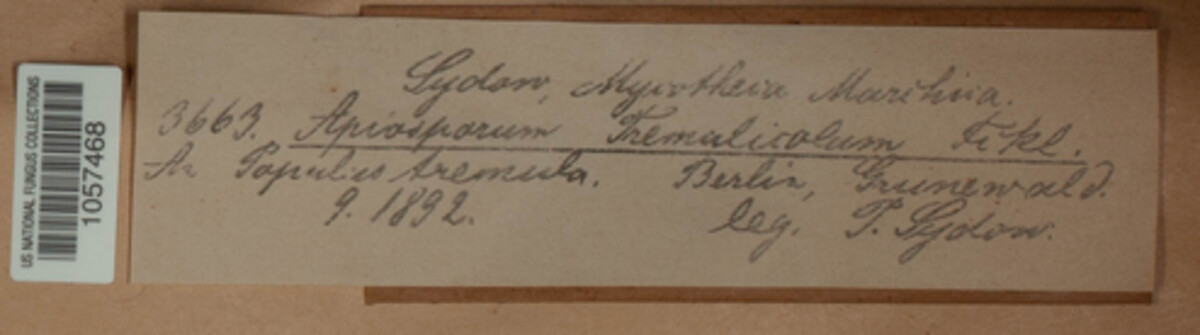 US NATIONAL FUNGUS COLLECTIONS
01057468
Sydow, Mycotheca Marchica.
3663. Apiosporum Tremulicolum Fckl.
An Populus tremula. Berlin, Grunewald.
9. 1892. leg. P. Sydow.